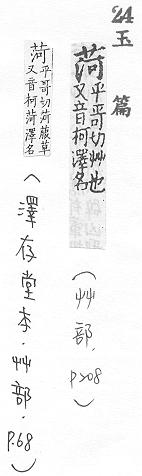 24
玉篇
菏平哥切艸也
又音柯澤名
(艸部, P208)
菏平哥切菏蔽草
又音柯菏澤名
(澤存堂本·艸部·P.68)